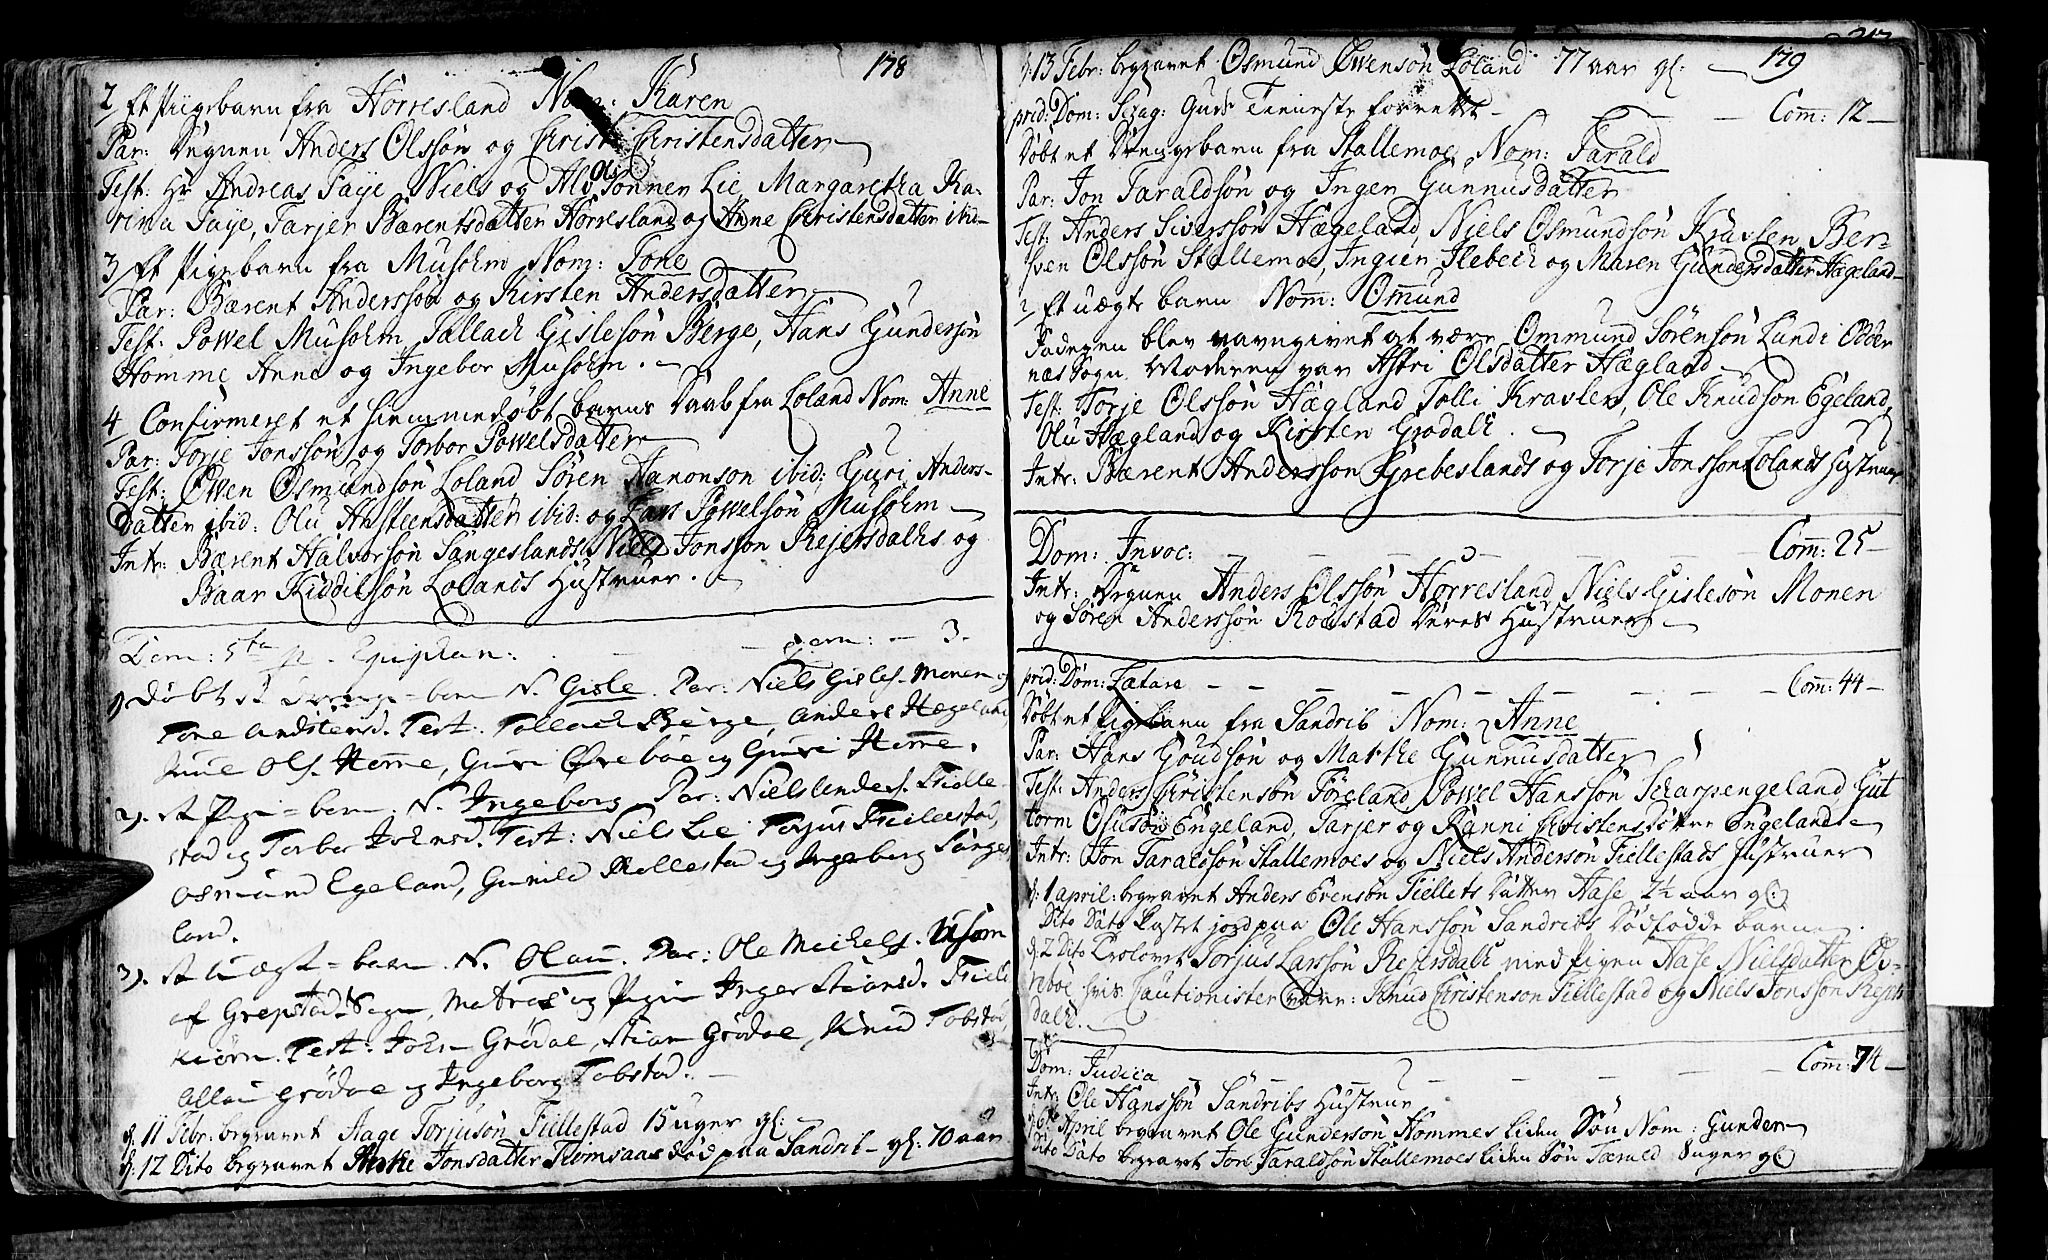 178
2/ Et Pigebarn fra Hørresland Nom: Karen
Par: Degnen Anders Olssøn og Christi Christensdatter
Test: Hr Andreas Faÿe, Niels og Alv Ols Sønner Lie, Margaretha Ka-
rina Faÿe, Tarjer Bærentsdatter Hørresland og Anne Christensdatter ibid
3/ Et Pigebarn fra Musolm Nom: Tone
Par: Bærent Anderssøn og Kirsten Andersdatter
Test: Powel Musolm, Tallach Gislesøn Berge, Hans Gundersøn
Homme, Anne og Ingebor Musolm.
4/ Confirmeret et hiemmedøbt barns Daab fra Loland Nom: Anne
Par: Torje Jonssøn og Torbor Powelsdatter
Test: Øwen Osmundsøn Loland, Søren Aanonson ibid: Guri Anders-
datter ibid: Olu Ansteensdatter ibid: og Lars Powelsøn Musolm
Intr: Bærent Halvorsøn Sangeslands, Niels Jonsson Rejersdalks og
Baar Kiddilsøn Lolands Hustruer.
Dom: 5ta p. Epiphan: - - 3.
1) Døbt et Drenge-barn N. Gisle. Par: Niels Gisles. Monen og
Tone Andstensd. Test: Tallach Berge, Anders Hægeland,
Ols. Homme, Guri Øreboe og Guri Homme.
2). et Pige-barn N. Ingeborg Par: Niels Anders. Fielle-
stad og Torbor Johnsd. Test: Niels Lie, Torjus Fiellestad,
Osmund Egeland, Gunild Fiellestad og Ingeborg Sanges-
land.
3). et Uægt-barn. N. Olau. Par: Ole Michels.
af Grepstad Sogn, Matros og Pigen Inger Stiansd.
Kiørn. Test: John Grødae, Stian Grødae, Knud Tobstad,
Grødae og Ingeborg Tobstad.
d: 11 Febr: begravet Aage Torjusøn Fiellestad 15 uger gl:
d: 12 Dito begravet Jonsdatter Homsaas død paa Sandrib - gl: 70 aar
179
d: 13 Febr: begravet Osmund Øwensøn Loland 77 aar gl:
prid: Dom: Sexag: Guds Tieneste forrettet - Com: 12
Døbt et Drengebarn fra Stallemoe Nom: Tarald
Par: Jon Taraldsøn og Inger Gunnusdatter
Test: Anders Siverssøn Hægeland, Niels Osmundsøn Kravlen, Ber-
sven Olssøn Stallemoe, Ingier Flebech og Maren Gundersdatter Hægeland
2/ Et uægte barn Nom: Omund
Faderen blev navngivet at være Ommund Sørensøn Lund i Odder
næs Sogn. Moderen var Astri Olsdatter Hægland
Test: Torje Olssøn Hægland, Tolli Kravlen, Ole Knudsøn Egeland,
Olu Hægland og Kirsten Grodalk.
Intr: Bærent Andersson Grebeslands og Torje Jonsson Lolands Hustruer
Dom: Invoc: - Com: 25
Intr: Degnen Anders Olssøn Hørresland, Niels Gislesøn Monen
og Søren Anderssøn Rodstad Deres Hustruer
prid: Dom: Lætare - Com: 44
Døbt et Pigebarn fra Sandrib Nom: Anne
Par: Hans Goudsøn og Marthe Gunnusdatter
Test: Anders Christensøn Føreland, Powel Hanssøn Scharpengeland, Gut
torm Osusøn Engeland, Tarjer og Ranni Christensdøttre Engeland
Intr: Jon Taraldsøn Stallemoes og Niels Andersøn Fiellestads Hustruer
d: 1 april: begravet Anders Evensøn Fiellets Datter Aase 2½ aar gl:
Dito Dato kastet jord paa Ole Hanssøn Sandribs Dødfødde barn.
d: 2 Dito Trolovet Torjus Larssøn Rejersdalk med Pigen Aase Nielsdatter Ø-
reboe hvis Cautionister vare: Knud Christenson Fiellestad og Niels Jonsson Rejers
dalk.
Dom: Judica - Com: 74
Intr: Ole Hanssøn Sandribs Hustrue
d: 6te April begravet Ole Gundersøn Hommes liden Søn Nom: Gunder
Dito Dato begravet Jon Taraldsøn Stallemoes liden Søn Tarald 8 uger gl: